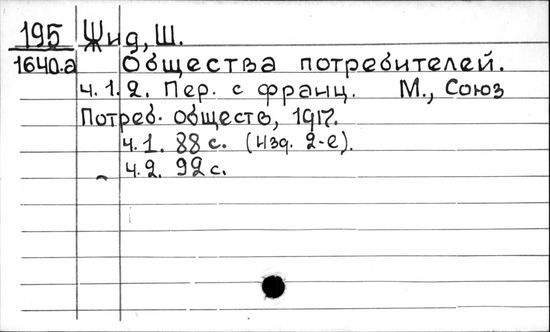 195 Жид, Ш.
1640-а Общества потребителей.
ч. 1. 2. Пер. с франц. М., Союз
Потреб. обществ, 1917.
ч. 1. 88 с. (изд. 2-е).
ч. 2. 92 с.